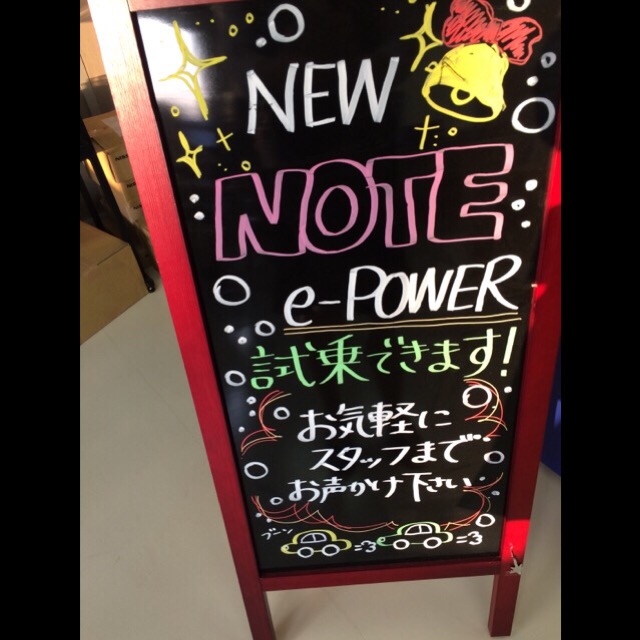 NEW
NOTE
e-POWER
試乗できます!
お気軽に
スタッフまで
お声かけ下さい
ブーン =3 =3